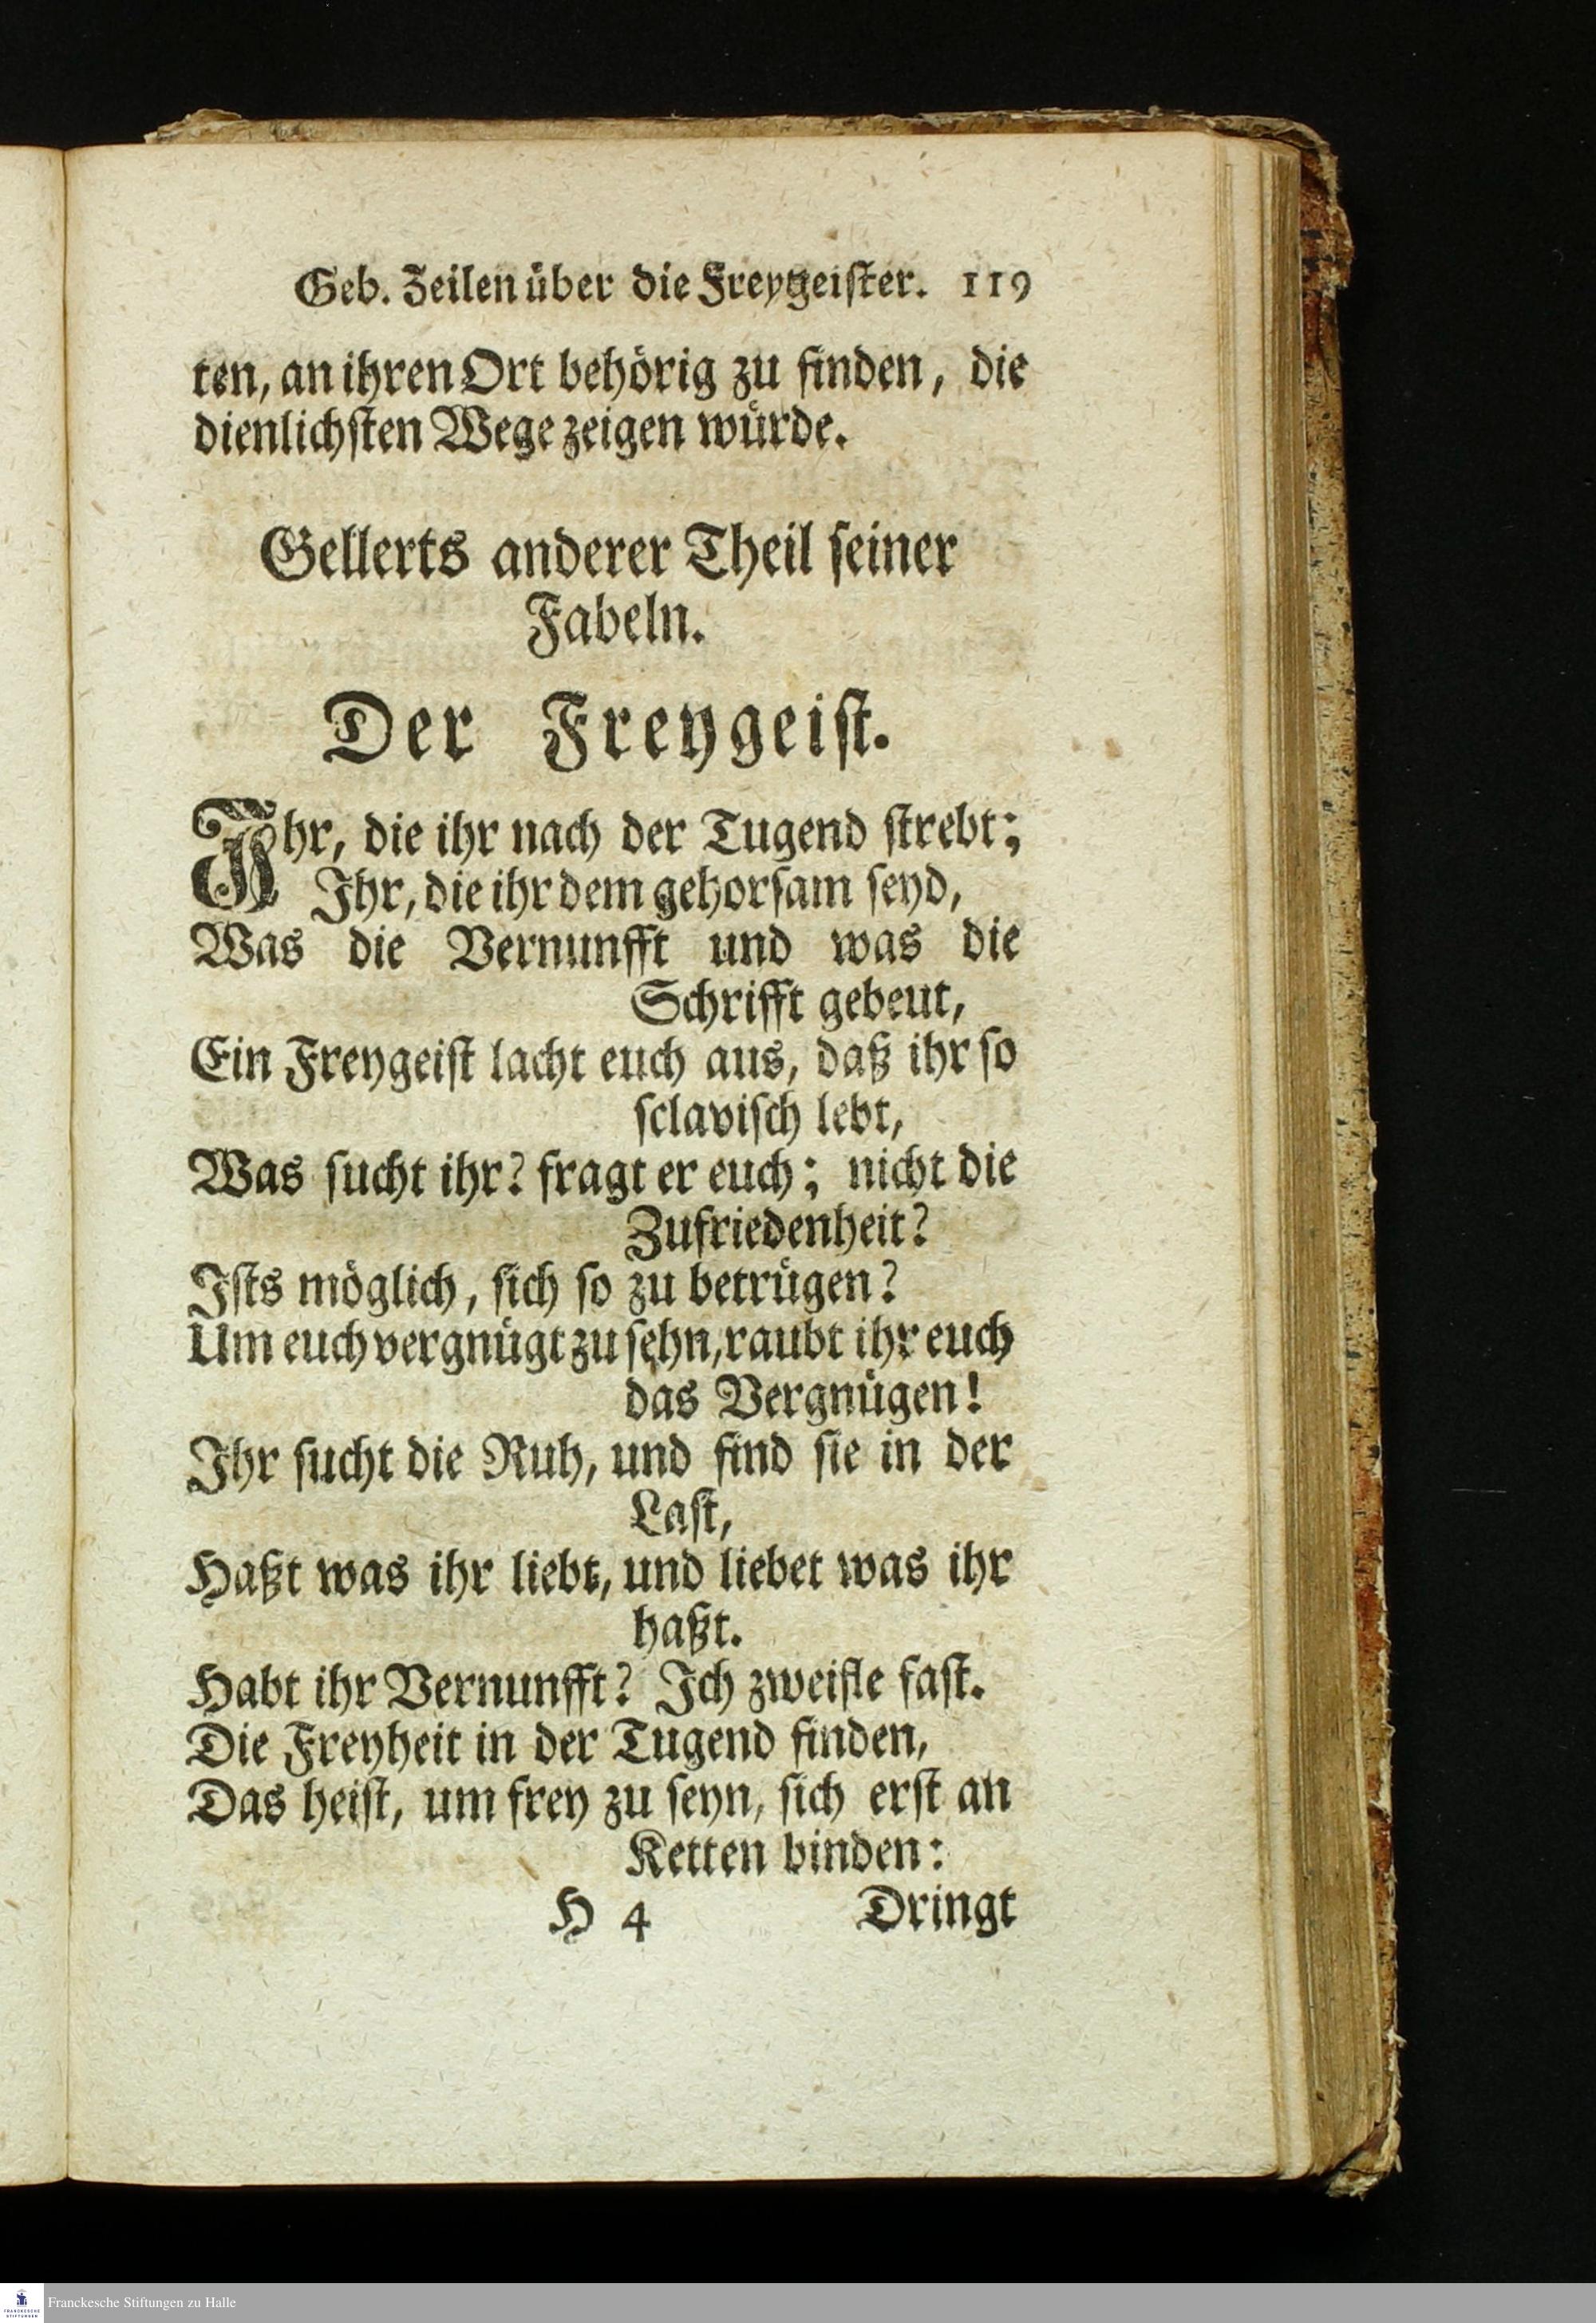 Geb. Zeilen über die Freygeister. 119
ten, an ihren Ort behörig zu finden, die
dienlichsten Wege zeigen würde.
Gellerts anderer Theil seiner
Fabeln.
Der Freygeist.
Ihr, die ihr nach der Tugend strebt;
Ihr, die ihr dem gehorsam seyd,
Was die Vernunfft und was die
Schrifft gebeut,
Ein Freygeist lacht euch aus, daß ihr so
sclavisch lebt,
Was sucht ihr? fragt er euch; nicht die
Zufriedenheit?
Ists möglich, sich so zu betrügen?
Um euch vergnügt zu sehn, raubt ihr euch
das Vergnügen!
Ihr sucht die Ruh, und find sie in der
Last,
Haßt was ihr liebt, und liebet was ihr
haßt.
Habt ihr Vernunfft? Ich zweifle fast.
Die Freyheit in der Tugend finden,
Das heist, um frey zu seyn, sich erst an
Ketten binden:
H 4 Dringt
FRANCKESCHE
STIFTUNGEN
Franckesche Stiftungen zu Halle